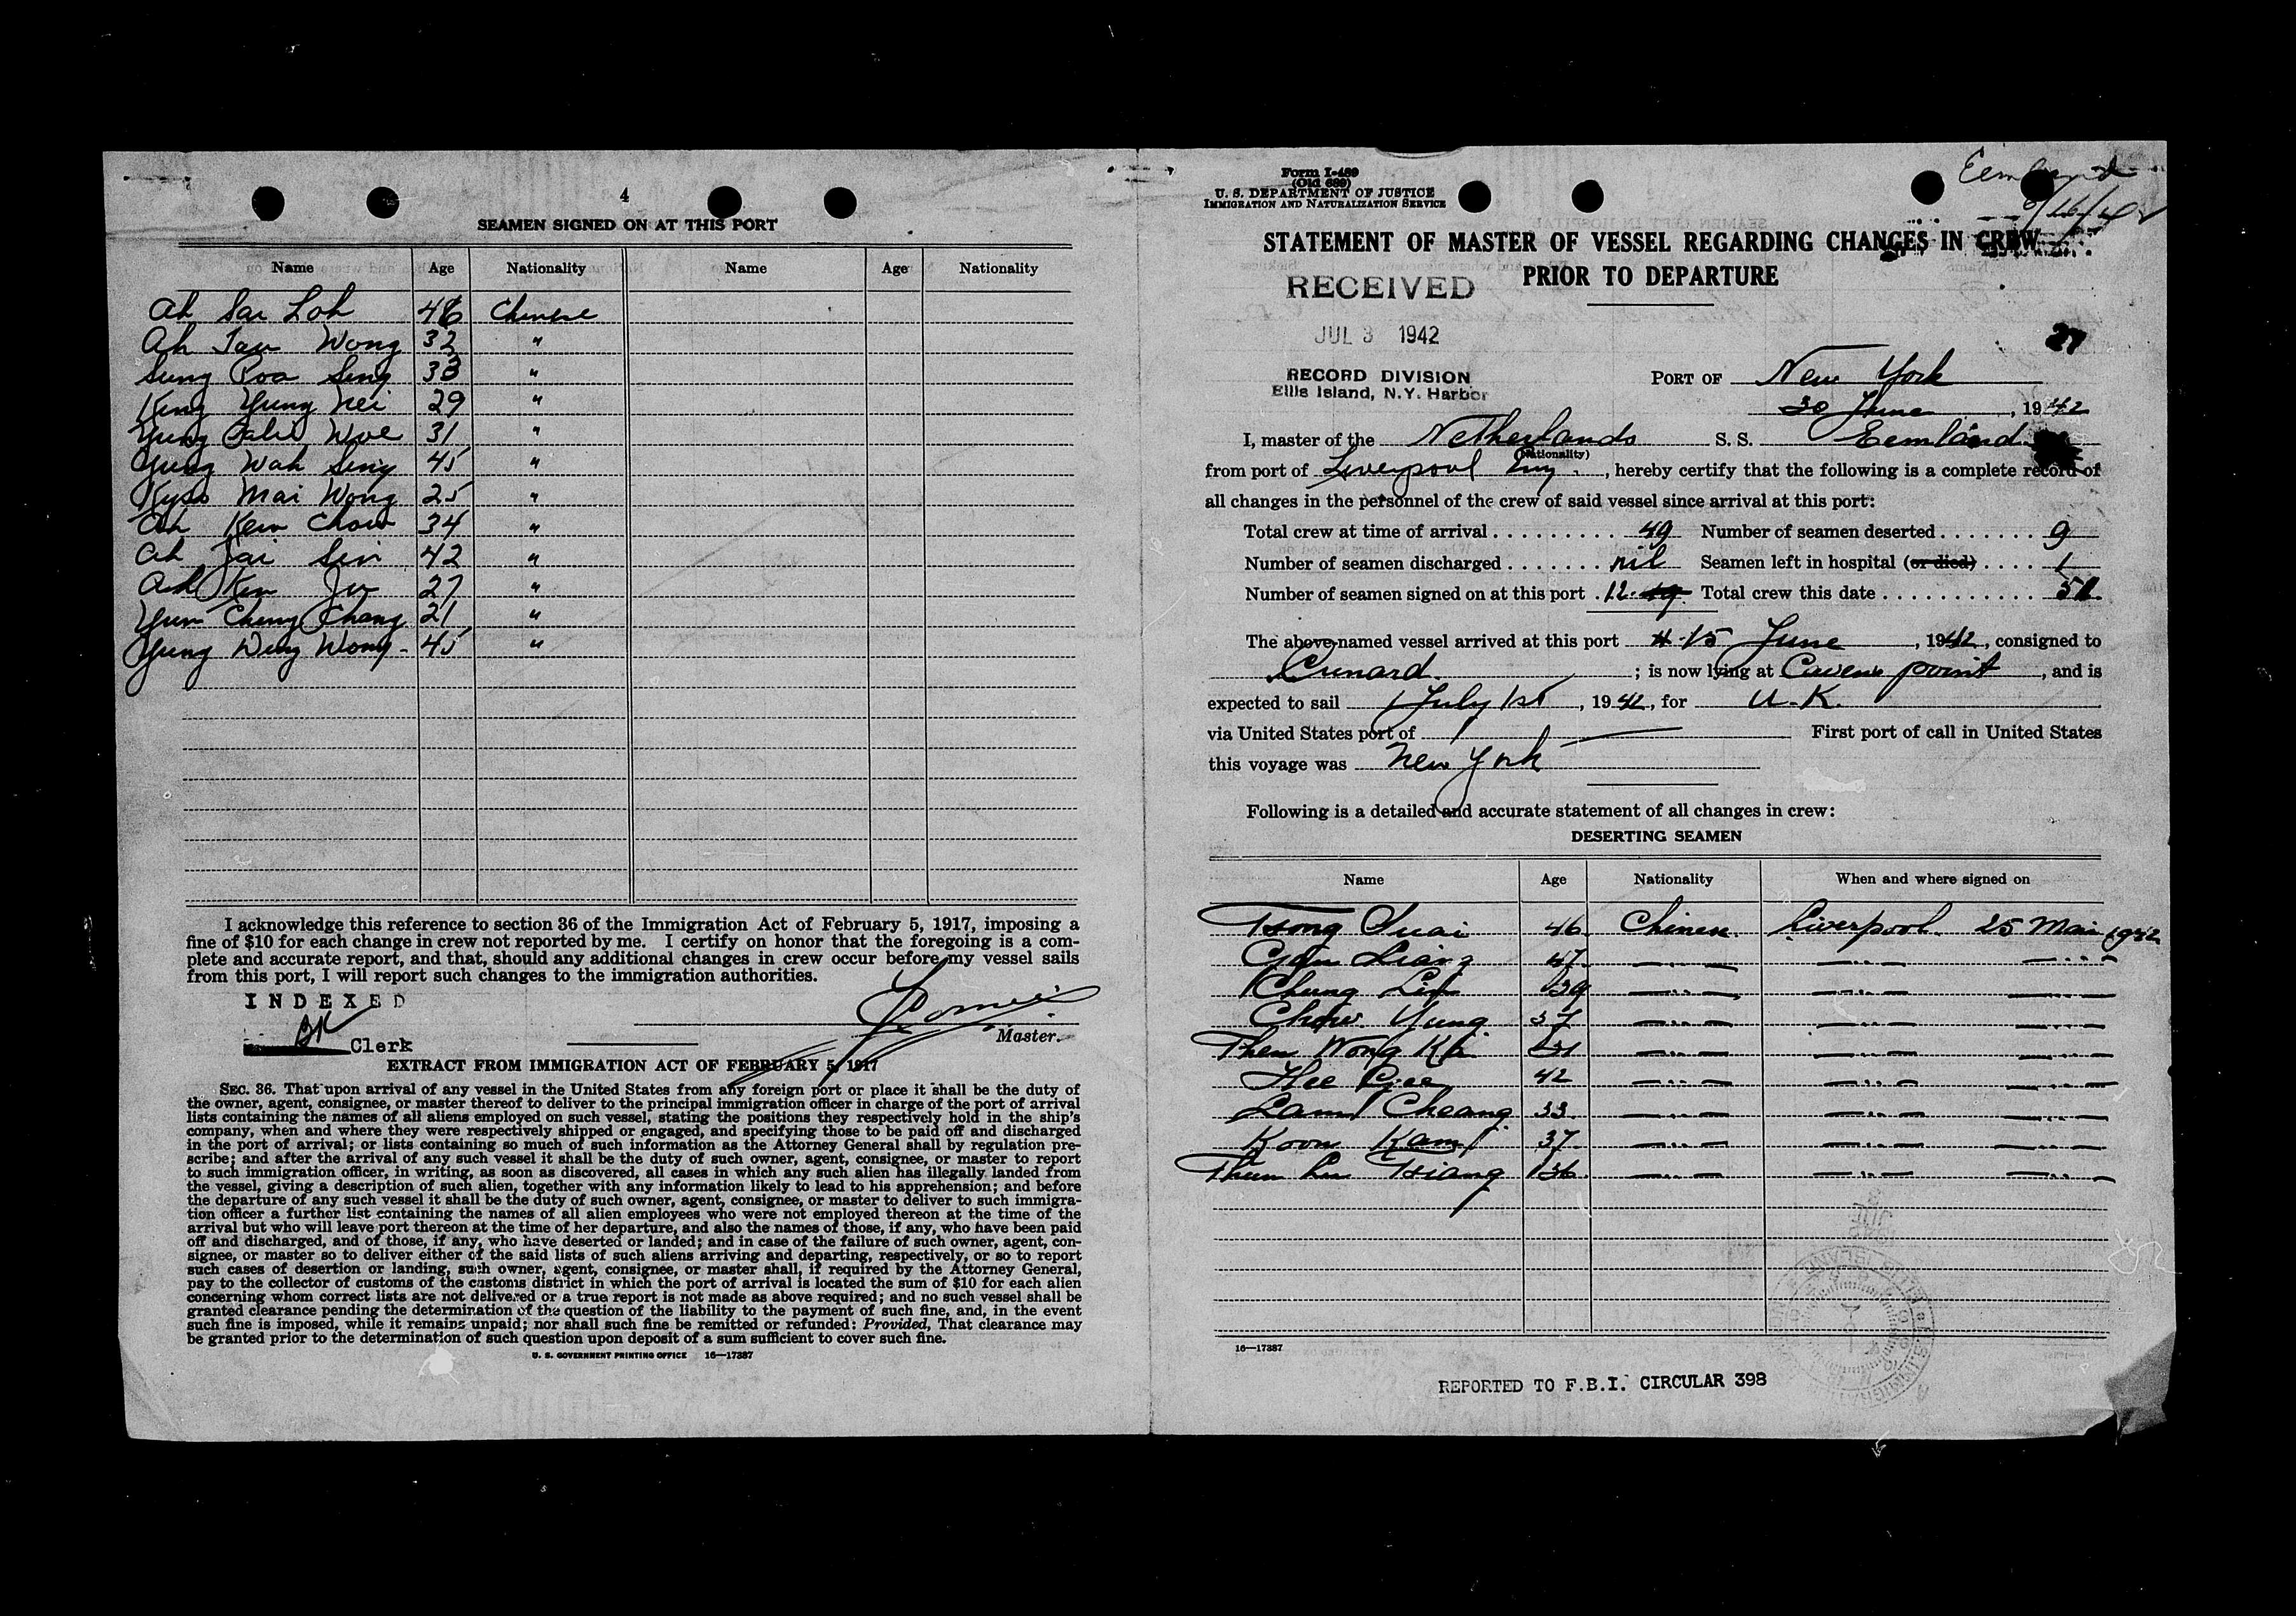 4
SEAMEN SIGNED ON AT THIS PORT
Name Age Nationality Name Age Nationality
Ah Sai Loh 46 Chinese
Ah Tau Wong 32 "
Sung Poa Sing 38 "
King Yung Nei 29 "
Yung Woe 31 "
Yung Wah Sing 45 "
Kyss Mai Wong 25 "
Ah Kew Chow 34 "
Ah Jai Sin 42 "
Ah Ken Ju 27 "
Yun Cheng Chang 21 "
Yung Ding Wong - 45 "
I acknowledge this reference to section 36 of the Immigration Act of February 5, 1917, imposing a
fine of $10 for each change in crew not reported by me. I certify on honor that the foregoing is a com-
plete and accurate report, and that, should any additional changes in crew occur before my vessel sails
from this port, I will report such changes to the immigration authorities.
INDEXED
BK
Clerk
Master.
EXTRACT FROM IMMIGRATION ACT OF FEBRUARY 5, 1917
SEC. 36. That upon arrival of any vessel in the United States from any foreign port or place it shall be the duty of
the owner, agent, consignee, or master thereof to deliver to the principal immigration officer in charge of the port of arrival
lists containing the names of all aliens employed on such vessel, stating the positions they respectively hold in the ship's
company, when and where they were respectively shipped or engaged, and specifying those to be paid off and discharged
in the port of arrival; or lists containing so much of such information as the Attorney General shall by regulation pre-
scribe; and after the arrival of any such vessel it shall be the duty of such owner, agent, consignee, or master to report
to such immigration officer, in writing, as soon as discovered, all cases in which any such alien has illegally landed from
the vessel, giving a description of such alien, together with any information likely to lead to his apprehension; and before
the departure of any such vessel it shall be the duty of such owner, agent, consignee, or master to deliver to such immigra-
tion officer a further list containing the names of all alien employees who were not employed thereon at the time of the
arrival but who will leave port thereon at the time of her departure, and also the names of those, if any, who have been paid
off and discharged, and of those, if any, who have deserted or landed; and in case of the failure of such owner, agent, con-
signee, or master so to deliver either of the said lists of such aliens arriving and departing, respectively, or so to report
such cases of desertion or landing, such owner, agent, consignee, or master shall, if required by the Attorney General,
pay to the collector of customs of the customs district in which the port of arrival is located the sum of $10 for each alien
concerning whom correct lists are not delivered or a true report is not made as above required; and no such vessel shall be
granted clearance pending the determination of the question of the liability to the payment of such fine, and, in the event
such fine is imposed, while it remains unpaid; nor shall such fine be remitted or refunded: Provided, That clearance may
be granted prior to the determination of such question upon deposit of a sum sufficient to cover such fine.
U. S. GOVERNMENT PRINTING OFFICE 16—17387
Form I-489
(Old 689)
U. S. DEPARTMENT OF JUSTICE
IMMIGRATION AND NATURALIZATION SERVICE
Eemland
STATEMENT OF MASTER OF VESSEL REGARDING CHANGES IN CREW
PRIOR TO DEPARTURE
RECEIVED
JUL 3 1942
RECORD DIVISION
Ellis Island, N.Y. Harbor
27
PORT OF New York
30 June, 1942
I, master of the Netherlands S. S. Eemland
(Nationality)
from port of Liverpool Eng., hereby certify that the following is a complete record of
all changes in the personnel of the crew of said vessel since arrival at this port:
Total crew at time of arrival . . . . . . . . . 49 Number of seamen deserted . . . . . . . 9
Number of seamen discharged . . . . . . . nil Seamen left in hospital (or died) . . . . 1
Number of seamen signed on at this port . 12 Total crew this date . . . . . . . . . . . . 51
The above-named vessel arrived at this port 15 June, 1942, consigned to
Cunard. ; is now lying at Cavens point, and is
expected to sail July 1st, 1942, for U.K.
via United States port of — First port of call in United States
this voyage was New York
Following is a detailed and accurate statement of all changes in crew:
DESERTING SEAMEN
Name Age Nationality When and where signed on
Tsong Suai 46. Chinese. Liverpool. 25 Mai 1942
Liang 47 —..— —..— —..—
Chung Lin 39 —..— —..— —..—
Chow Yung 37 —..— —..— —..—
Then Wong Kai 31 —..— —..— —..—
Hee Gee 42 —..— —..— —..—
Lam Cheang 33 —..— —..— —..—
Koon Kam 37 —..— —..— —..—
Thun Lu Tsiang 36 —..— —..— —..—
16—17387
REPORTED TO F.B.I. CIRCULAR 398